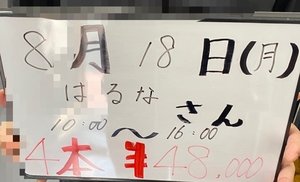 8月18日(月)
はるなさん
10:00〜16:00
4本 ¥48,000